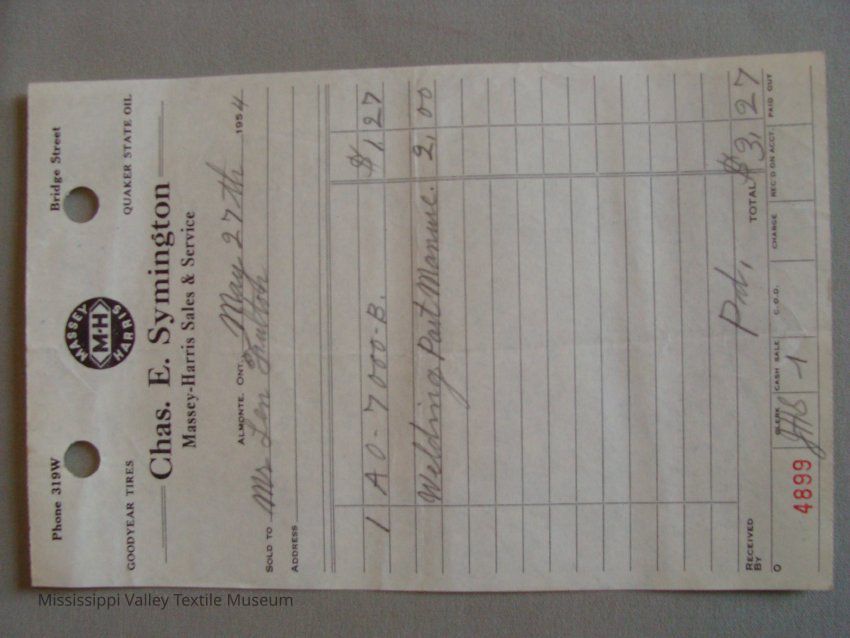 Phone 319W Bridge Street
MASSEY M-H HARRIS
GOODYEAR TIRES QUAKER STATE OIL
Chas. E. Symington
Massey-Harris Sales & Service
ALMONTE, ONT., May 27th 1954
SOLD TO Mr Len
ADDRESS
1 A0-7000-B. $1,27
Welding Part Manure. 2,00
Pd, TOTAL $3,27
RECEIVED BY
O CLERK CASH SALE C.O.D. CHARGE REC'D ON ACCT. PAID OUT
4899 1
Mississippi Valley Textile Museum